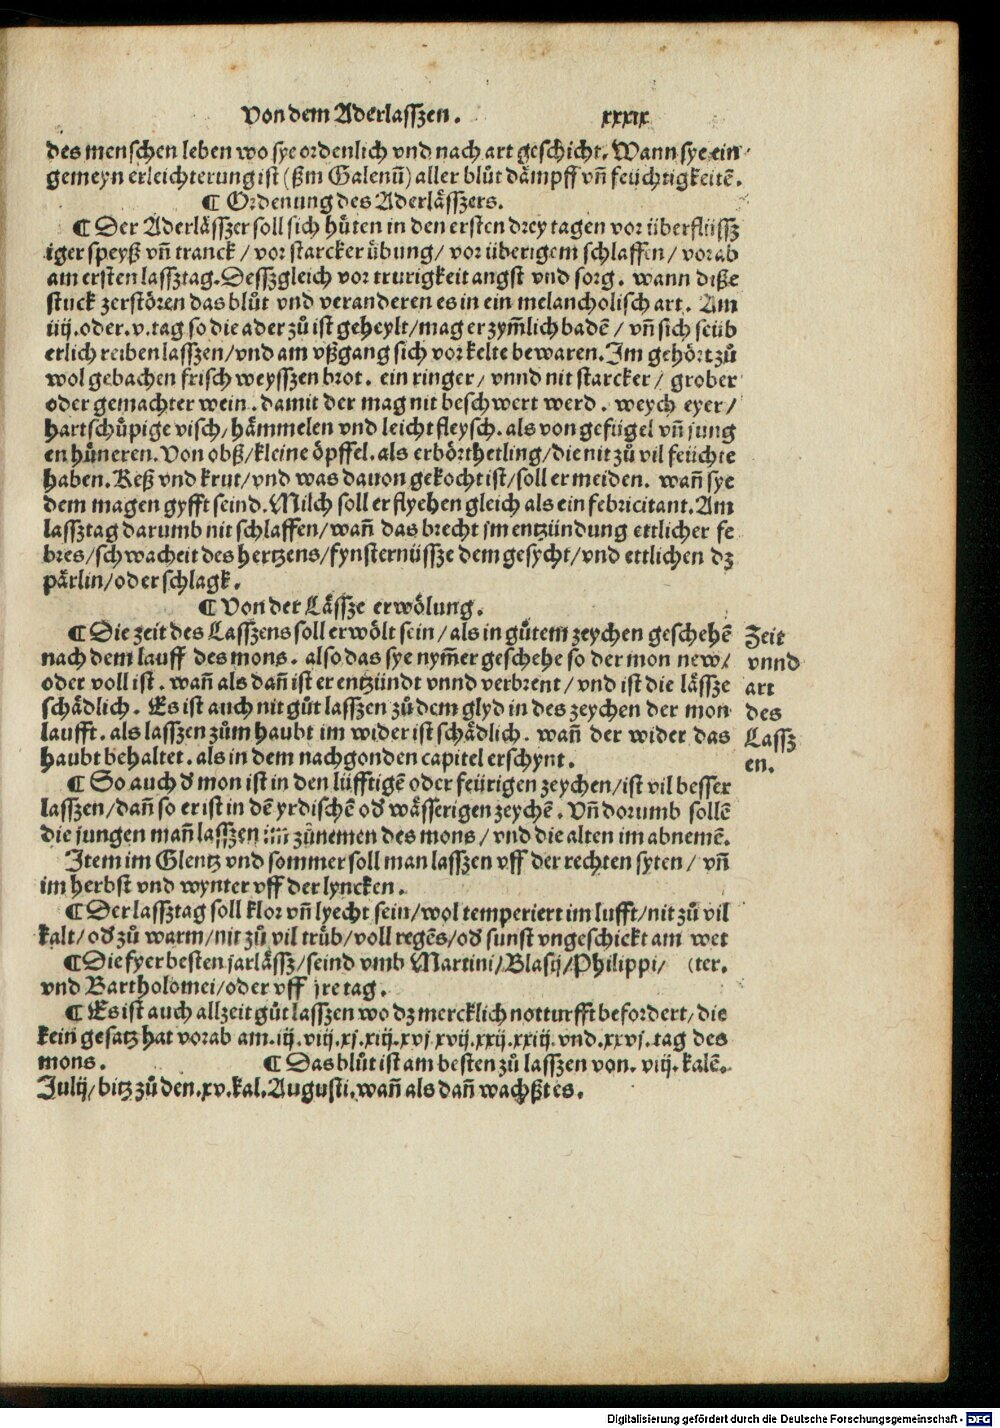 Von dem Aderlasſzen. xxxix
des menschen leben wo sye ordenlich vnd nach art geschicht. Wann sye ein
gemeyn erleichterung ist (ßm Galenū) aller blůt dämpff vñ feüchtigkeitē.
¶ Ordenung des Aderläsſzers.
¶ Der Aderläsſzer soll sich hüten in den ersten drey tagen vor überflüsſz
iger speyß vñ tranck / vor starcker übung / vor überigem schlaffen / vorab
am ersten lasſztag. Desſzgleich vor trurigkeit angst vnd sorg. wann diße
stuck zerstören das blůt vnd veranderen es in ein melancholisch art. Am
iiij. oder. v. tag so die ader zů ist geheylt / mag er zym̄lich badē / vñ sich seüb
erlich reiben lasſzen / vnd am vßgang sich vor kelte bewaren. Im gehört zů
wol gebachen frisch weysſzen brot. ein ringer / vnnd nit starcker / grober
oder gemachter wein. damit der mag nit beschwert werd. weych eyer /
hartschůpige visch / hämmelen vnd leicht fleysch. als von geflügel vñ jung
en hůneren. Von obß / kleine öpffel. als erbörthetling / die nit zů vil feüchte
haben. Keß vnd krut / vnd was dauon gekocht ist / soll er meiden. wañ sye
dem magen gyfft seind. Milch soll er flyehen gleich als ein febricitant. Am
lasſztag darumb nit schlaffen / wañ das brecht jm entzündung ettlicher fe
bres / schwacheit des hertzens / fynsternüsſze dem gesycht / vnd ettlichen dz
pärlin / oder schlagk.
¶ Von der Läsſze erwölung.
¶ Die zeit des Lasſzens soll erwölt sein / als in gůtem zeychen geschehē
nach dem lauff des mons. also das sye nym̄er geschehe so der mon new /
oder voll ist. wañ als dañ ist er entzündt vnnd verbrent / vnd ist die läsſze
schädlich. Es ist auch nit gůt lasſzen zů dem glyd in des zeychen der mon
laufft. als lasſzen zům haubt im wider ist schädlich. wañ der wider das
haubt behaltet. als in dem nachgonden capitel erschynt.
Zeit
vnnd
art
des
Lasſz
en.
¶ So auch d' mon ist in den lüfftigē oder feürigen zeychen / ist vil besser
lasſzen / dañ so er ist in dē yrdischē od' wässerigen zeychē. Vñ dorumb sollē
die jungen mañ lasſzen im zůnemen des mons / vnd die alten im abnemē.
Item im Glentz vnd sommer soll man lasſzen vff der rechten syten / vñ
im herbst vnd wynter vff der lyncken.
¶ Der lasſztag soll klor vñ lyecht sein / wol temperiert im lufft / nit zů vil
kalt / od' zů warm / nit zů vil trüb / voll regēs / od' sunst vngeschickt am wet
¶ Die fyer besten jarläsſz / seind vmb Martini / Blasij / Philippi / (ter.
vnd Bartholomei / oder vff jre tag.
¶ Es ist auch allzeit gůt lasſzen wo dz mercklich notturfft befordert / die
kein gesatz hat vorab am. iij. viij. xj. xiij. xvj xvij. xxij. xxiij. vnd. xxvj. tag des
mons. ¶ Das blůt ist am besten zů lasſzen von. viij. kalē.
Julij / bitz zů den. xv. kal. Augusti. wañ als dañ wachßt es.
Digitalisierung gefördert durch die Deutsche Forschungsgemeinschaft - DFG